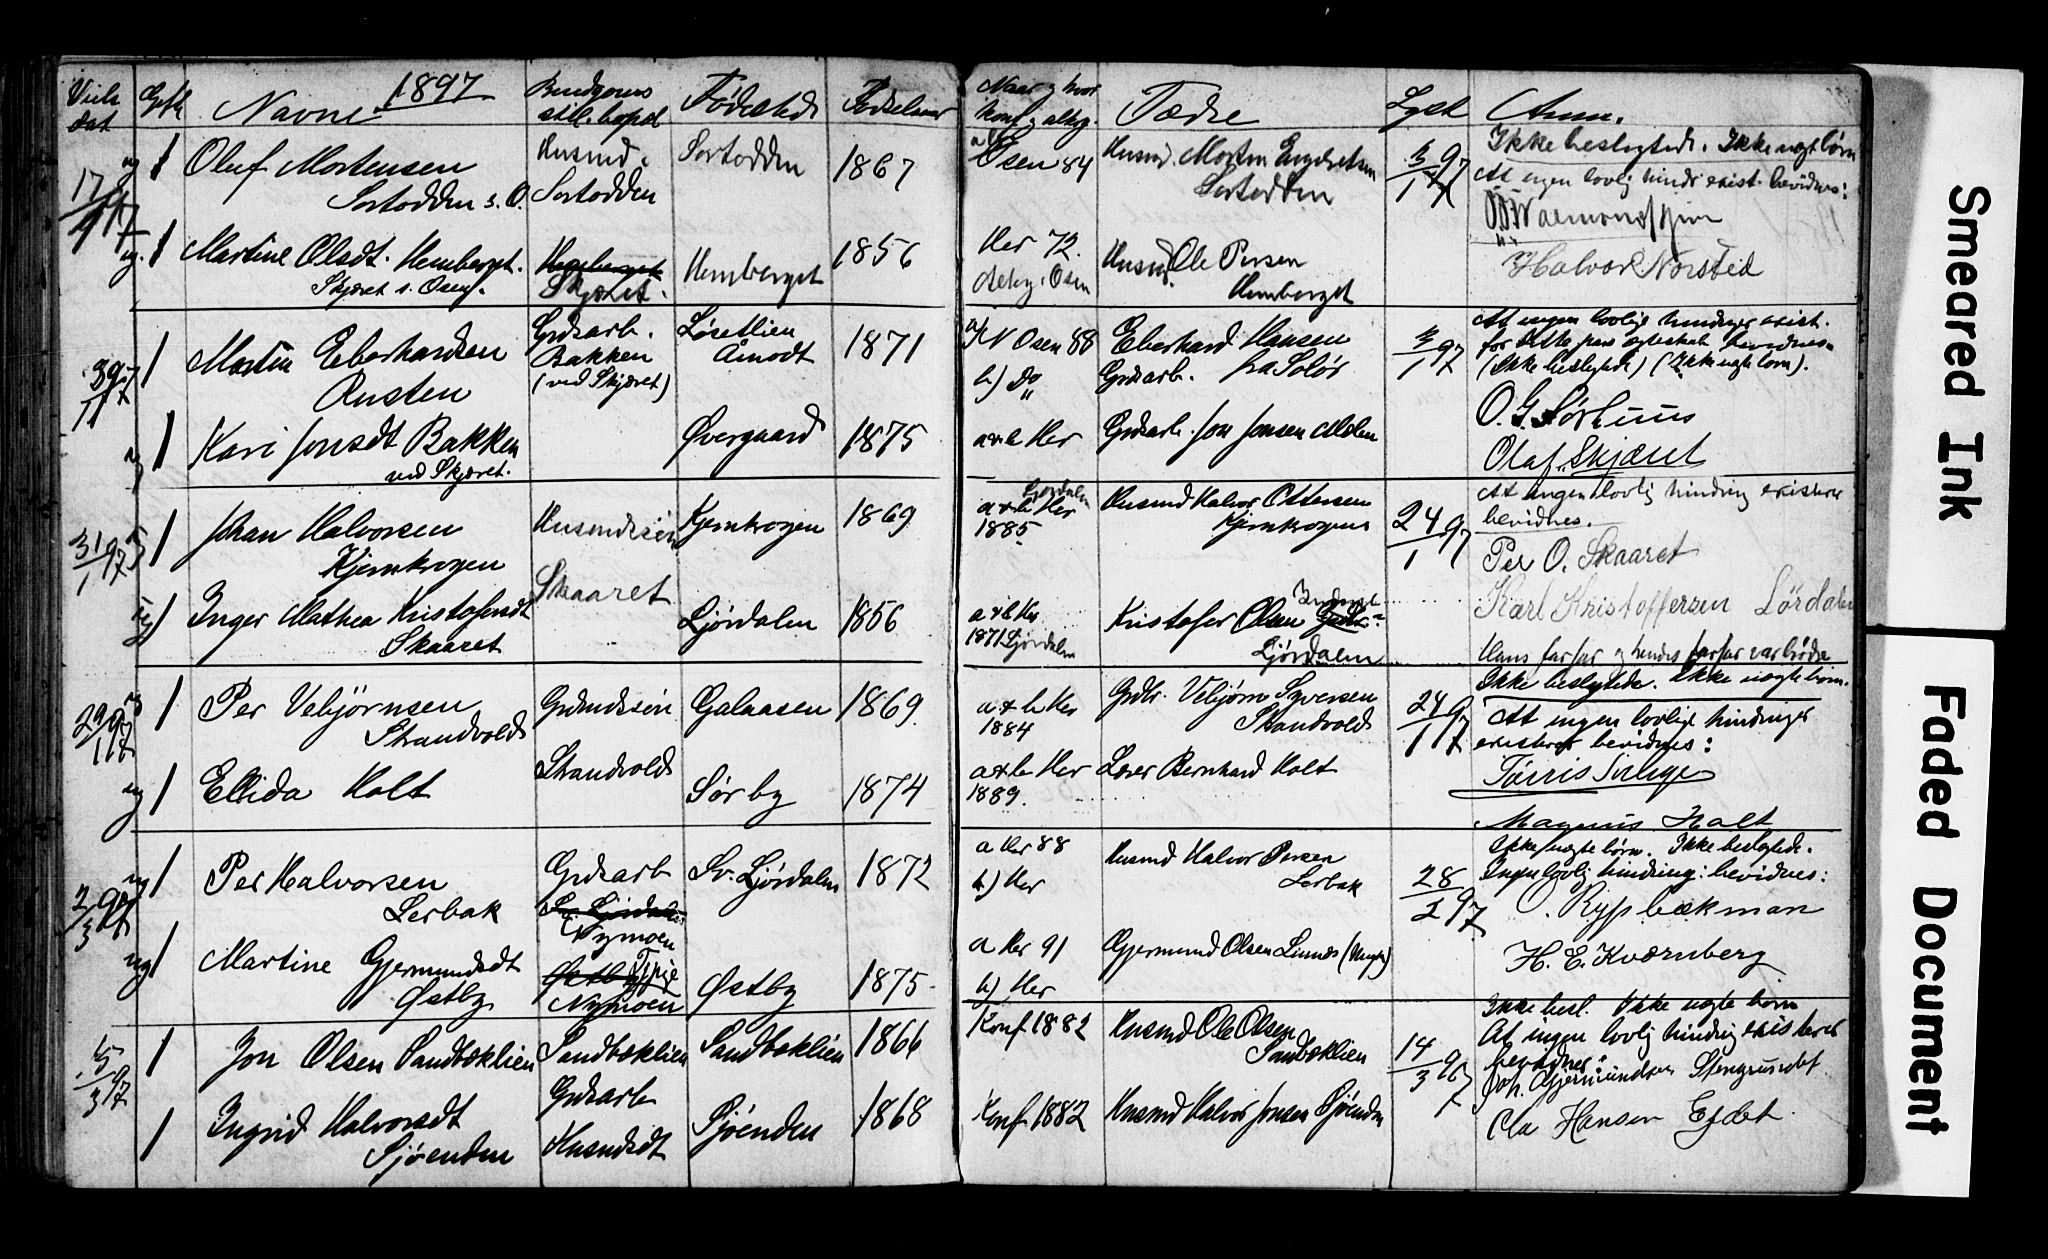 Viels dat
Gift
Navne 1897
Brudgoms still. bopæl
Fødested
Fødselsaar
Naar og hvor konf. altrg.
Fædre
Lyst
Anm.
17/1 97
ug 1 Oluf Mortensen
Sortodden s. O.
Husmd.
Sortodden
Sortodden
1867
Osen 84
Husmd. Morten Engebretsen
Sortodden
3/1 97
Ikke beslegtede. Ikke uegte børn
At ingen lovlig hindr exist. bevidnes:
ug. 1 Martine Olsdt. Hemberget.
Skjæret s. Osen.
Skjæret.
Hemberget
1856
Her 72
Altrg. i Osen
Husmd. Ole Persen
Hemberget
Halvor Norsted
3/1 97
1 Morten Eberhardsen
Rusten
Grdsarb.
Bakken
(ved Skjæret)
Løsetlien
Åmodt
1871
a) N Osen 88
b) Do
Eberhard Hansen
Grdsarb. fra Solør
3/1 97
At ingen lovlige hindringer exist.
for dette pars ægteskab bevidnes
(Ikke beslegtede) (Ikke uegte børn).
O. G. Sørhuus
ug 1 Kari Jonsdt Bakken
ved Skjæret.
Øvergaard
1875
a & b Her
Grdsarb. Jon Jonsen Moen
Olaf Skjæret
31/1 97
1 Johan Halvorsen
Kjernkrogen
Husmdssøn
Kjernkrogen
1869
Ljørdalen
a & b Her
1885
Husmd Halvor Ottersen
Kjernkrogen
24/1 97
At ingen lovlig hindring existerer
bevidnes.
Per O. Skaaret
Inger Mathea Kristofersdt
Skaaret
Skaaret
Ljørdalen
1856
a & b Her
1871 Ljørdalen
Kristofer Olsen
Ljørdalen
Karl Kristoffersen Lördalen
Hans farfar og hendes farfar var brödre
29/1 97
1 Per Vebjørnsen
Strandvold
Grdmdssøn
Galaasen
1869
a & b Her
1884
Grdbr. Vebjørn Syversen
Strandvold
24/1 97
Ikke beslegtede. Ikke uegte børn.
At ingen lovlige hindringer
existerer bevidnes:
ug 1 Ellida Holt
Strandvold
Sørby
1874
a & b Her
1889.
Lærer Bernhard Holt
Magnus Holt
2/3 97
ug 1 Per Halvorsen
Lerbak
Grdsarb
Sv. Ljørdalen
Nymoen
Sv. Ljørdalen
1872
a Her 88
b) Her
Husmd Halvor Persen
Lerbak
28/2 97
Ikke uegte børn. Ikke beslegtede.
Ingen lovlig hindring: bevidnes:
O. Rypbækman
ug 1 Martine Gjermundsdt
Østby
Østby
Nymoen
Østby
1875
a Her 91
b) Her
Gjermund Olsen Linnes
H. E. Kværnberg
5/3 97
1 Jon Olsen Sandbæklien
Sandbæklien
Grdsarb
Sandbæklien
1866
Konf 1882
Husmd Ole Olsen
Sandbæklien
14/3 97
Ikke besl. Ikke uegte børn
At ingen lovlig hindring existerer
bevidner:
Joh. Gjermundsen Stengrundet
1 Ingrid Halvorsdt
Sjøenden
Husmdsdt
Sjøenden
1868
Konf 1882
Husmd Halvor Jonsen Sjøenden
Ola Hansen Egdet
Smeared Ink
Faded Document